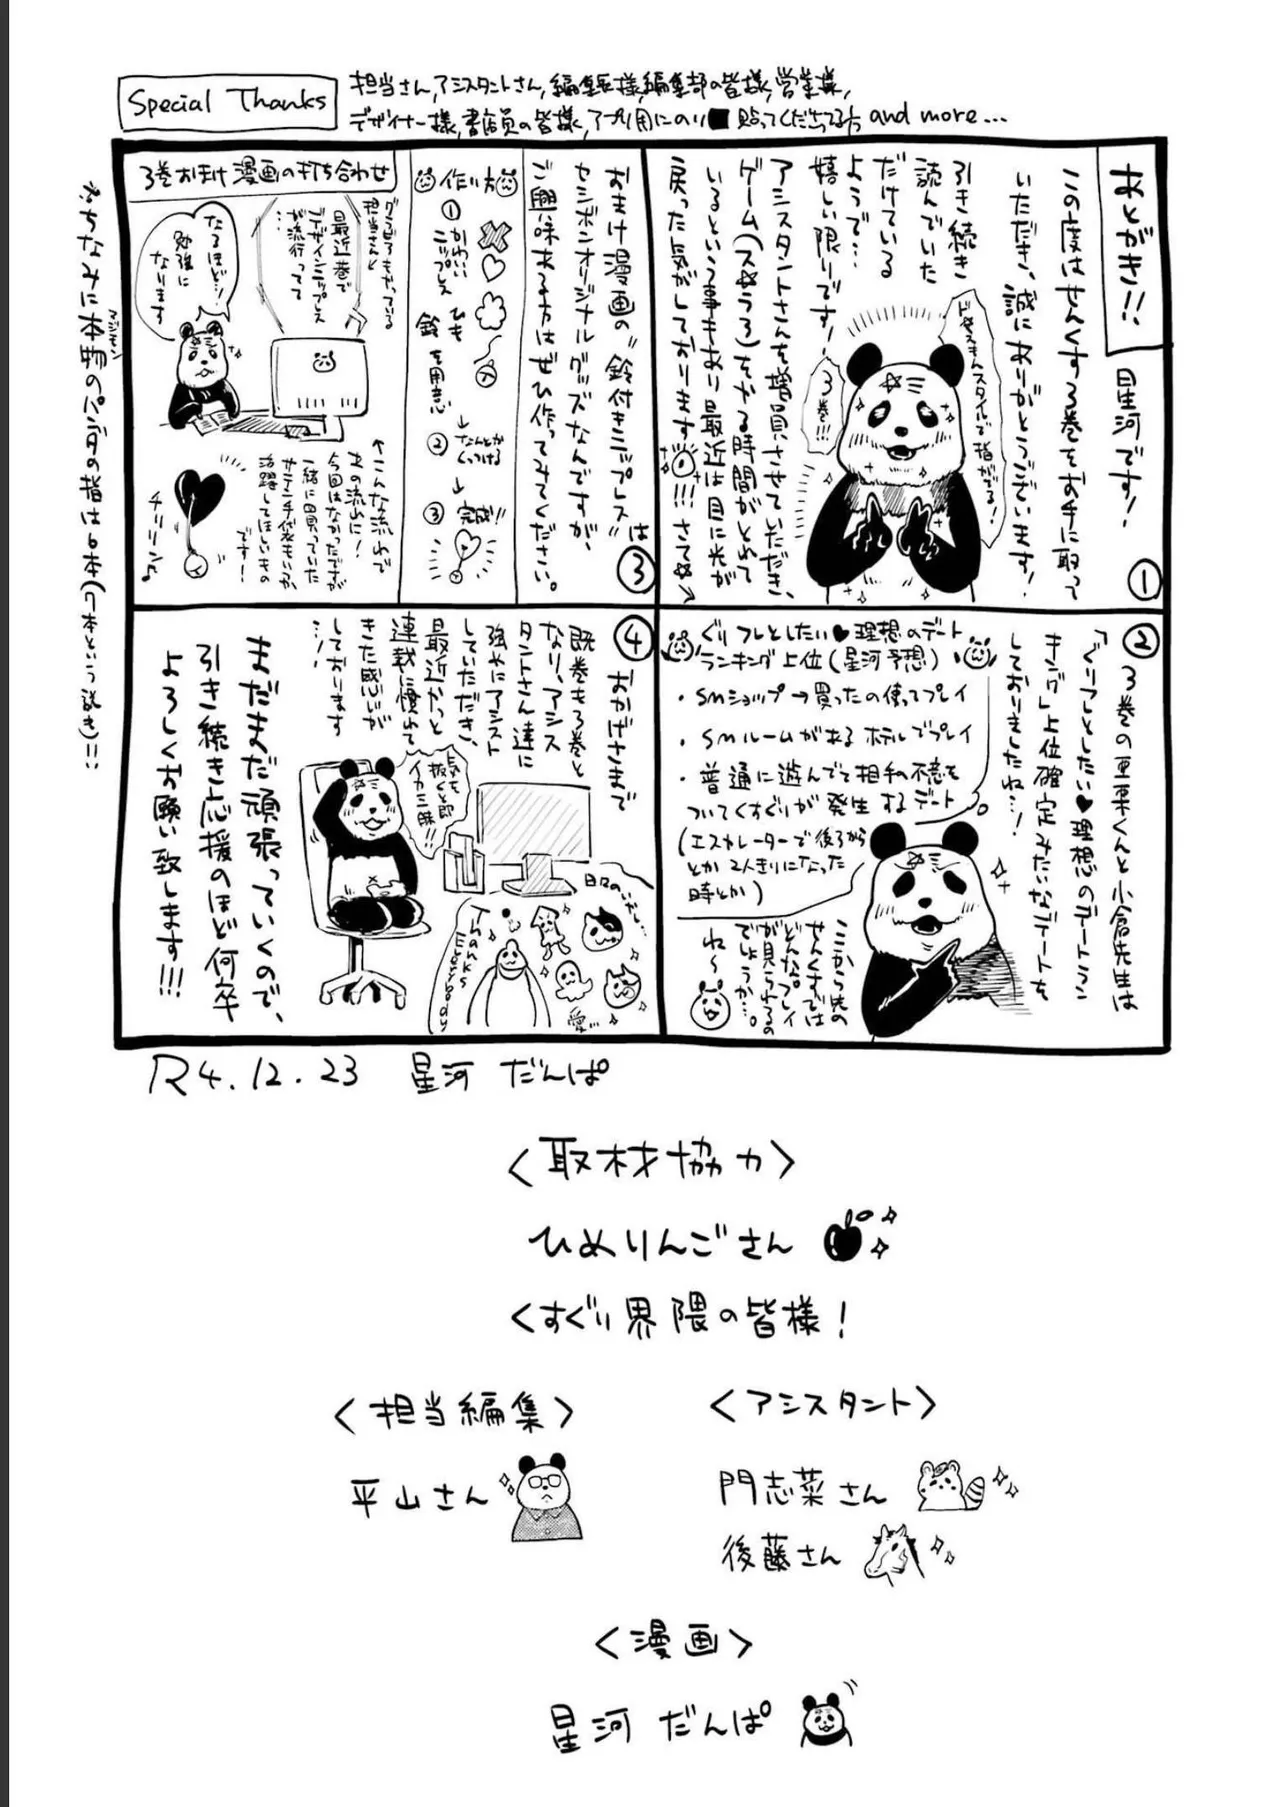 Special Thanks
担当さん,アシスタントさん,編集長様,編集部の皆様,営業様,
デザイナー様,書店員の皆様,アプリ用にのり■貼ってくださってる方 and more...
あとがき!!
星河です!
①
この度はせんくすぐ3巻をお手に取って
いただき、誠にありがとうございます!
引き続き
読んでいた
だけている
ようで…
嬉しい限りです!
アシスタントさんを増員させていただき、
ゲーム(ス☆うろ)をやる時間がとれて
いるという事もあり最近は目に光が
戻った気がしております!!!さて
3巻!!!
スタイルで指がでる!
②
3巻の亜栗くんと小倉先生は
「ぐりフレとしたい♥理想のデートラン
キング」上位確定みたいなデートを
しておりましたね…!
ぐりフレとしたい♥理想のデート
ランキング上位(星河予想)
・SMショップ→買ったの使ってプレイ
・SMルームがあるホテルでプレイ
・普通に遊んでて相手の不意を
ついてくすぐりが発生するデート
(エスカレーターで後ろから
とか2人きりになった
時とか)
ここから先の
せんくすぐでは
どんなプレイ
が見られるの
でしょうか…。
ね〜
③
おまけ漫画の"鈴付きニップレス"は
センボンオリジナルグッズなんですが、
ご興味ある方はぜひ作ってみてください。
作り方
①かわいい
ニップレス
ひも
鈴
を用意
↓
②なんとか
くっつける
↓
③完成!!
3巻おまけ漫画の打ち合わせ
担当さんと
最近巷で
デザインニップレス
が流行ってて
…
なるほど…!
勉強に
なります
←こんな流れで
あの流れに!
今回はなかったですが
一緒に買っていた
サテン手袋もいつか
活躍してほしいもの
です!
チリリン♪
※ちなみに本物のパンダの指は6本(7本という説も)!!
マジモン
④
おかげさまで
既巻も3巻と
なり、アシス
タントさん達に
強めにアシスト
していただき、
最近やっと
連載に慣れて
きた感じが
しております
…!
気を
抜くと即
イカ三昧!!
日々のいやし…
Thanks
Everybody
愛…
まだまだ頑張っていくので、
引き続き応援のほど何卒
よろしくお願い致します!!!
R4.12.23 星河 だんぱ
〈取材協力〉
ひめりんごさん
くすぐり界隈の皆様!
〈担当編集〉
平山さん
〈アシスタント〉
門志菜さん
後藤さん
〈漫画〉
星河 だんぱ